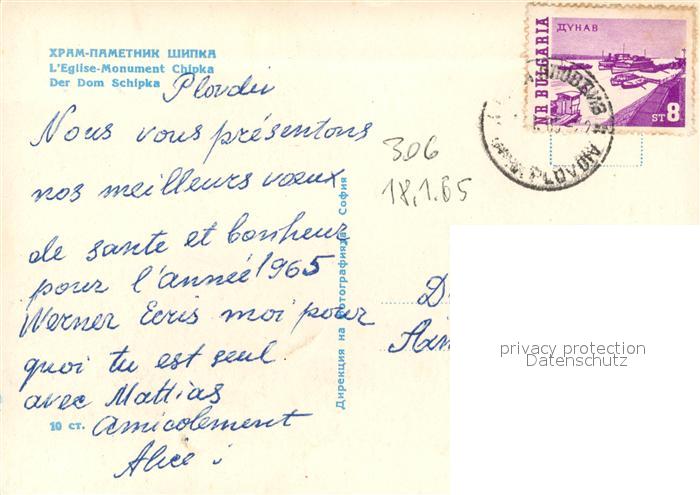 ХРАМ-ПАМЕТНИК ШИПКА
L'Eglise-Monument Chipka
Der Dom Schipka
Plovdiv
Nous vous présentons
nos meilleurs vœux
de sante et bonheur
pour l'année 1965
Werner Ecris moi pour
quoi tu est seul
avec Mattias
Amicolement
Alice
10 ст.
306
18,1.65
Дирекция на фотографията София
ДУНАВ
NR BULGARIA
ST 8
ПЛОВДИВ
PLOVDIV
privacy protection
Datenschutz